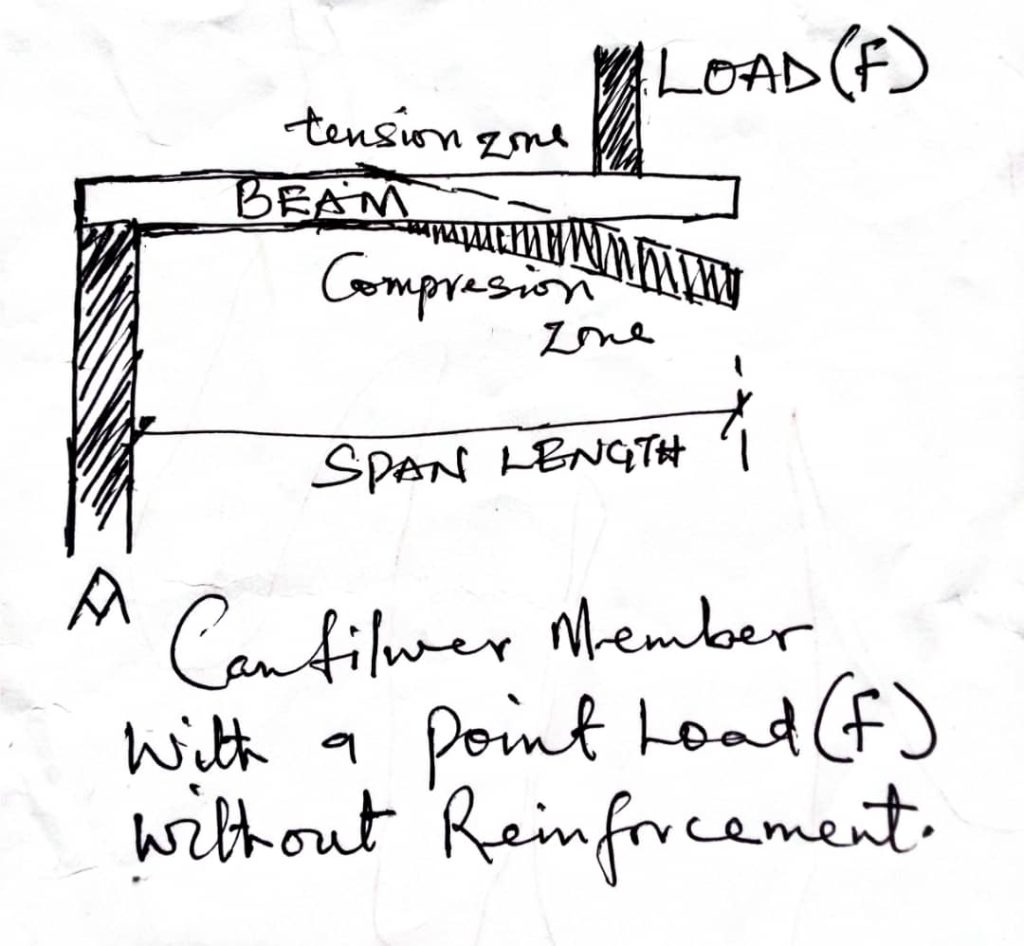 LOAD (F)
tension zone
BEAM
Compresion
zone
SPAN LENGTH
A Cantilwer Member
With a point Load (F)
without Reinforcement.